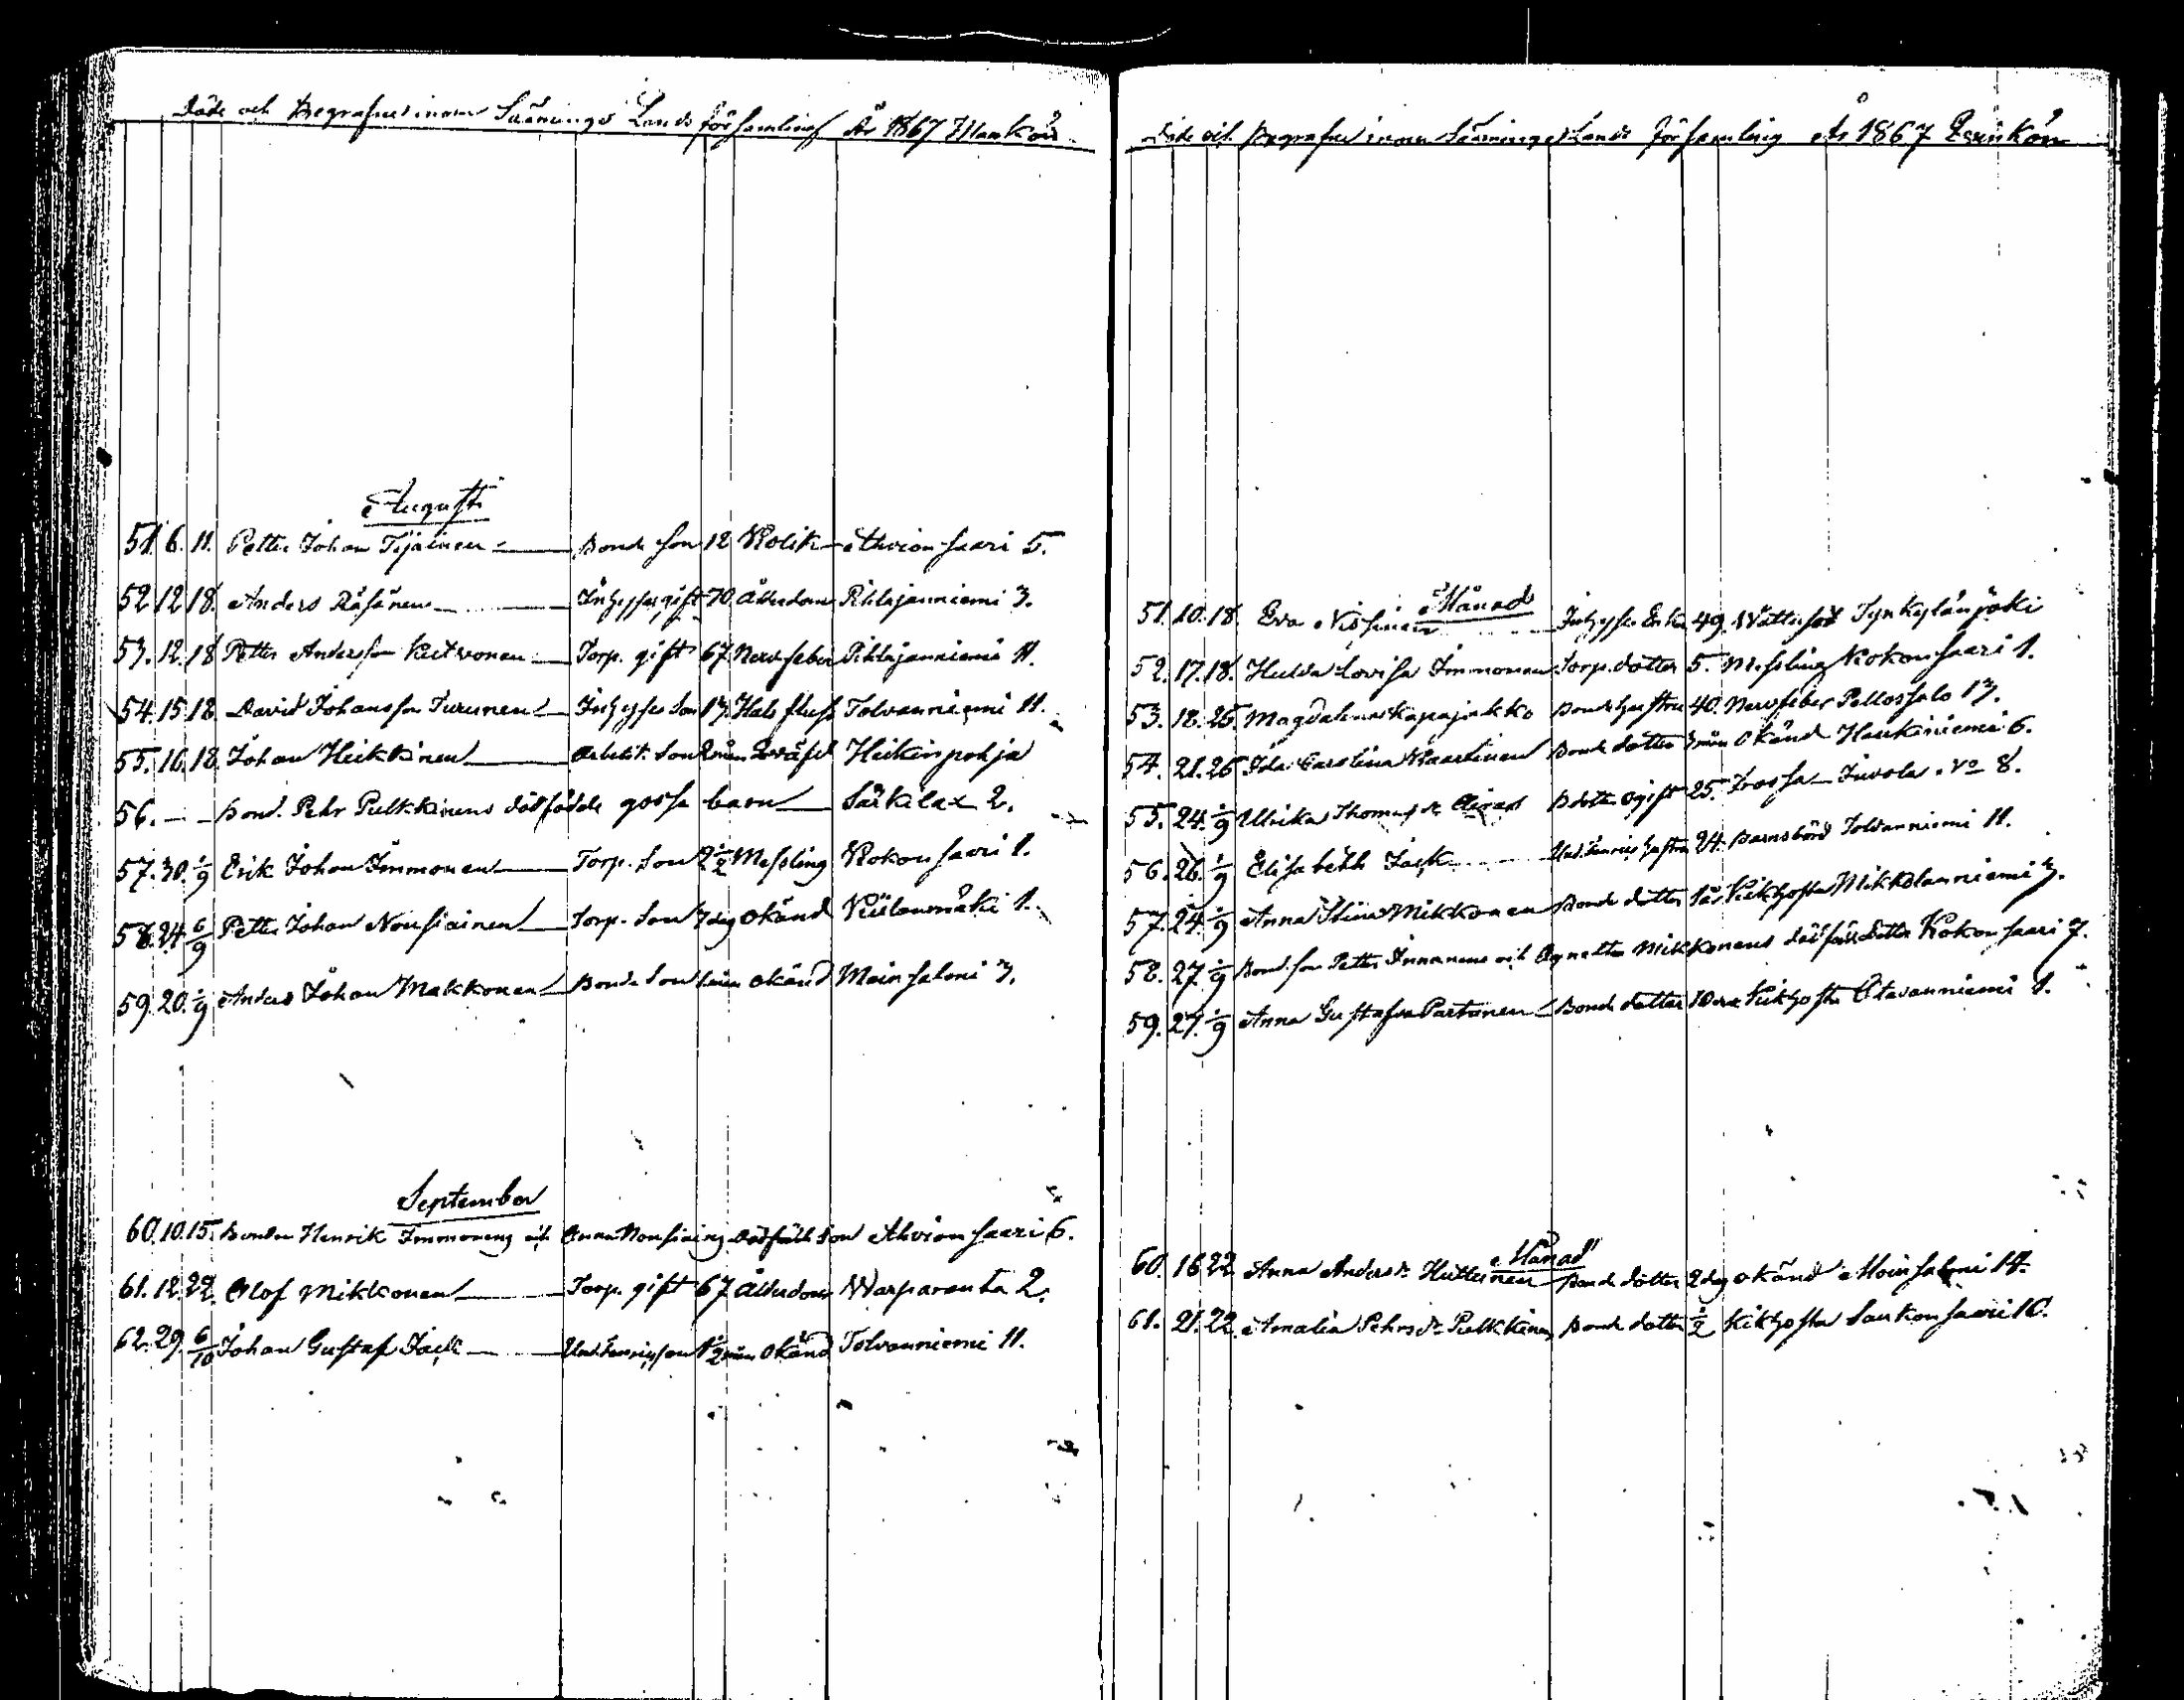 Döde och Begrafne inom Säminge Lands församling År 1867 Mankön
Augusti
51. 6. 11. Petter Johan Tyjäinen Bonde son 12 Kolik Ahvionsaari 5.
52. 12. 18. Anders Räsänen Inhyses gift 70 Ålderdom Pihlajaniemi 3.
53. 12. 18 Petter Andersson Keitvonen Torp. gift 67 Nervfeber Pihlajaniemi 11.
54. 15. 18. David Johansson Turunen Inhyses Son 13. Halsfluss Tolvanniemi 11.
55. 16. 18. Johan Heikkinen Arbet. Son 2 mån Heikinpohja
56. — — Bond. Pehr Pulkkinens dödfödde gosse barn Särkilax 2.
57. 30. 1/9 Erik Johan Immonen Torp. Son 2 1/2 Messling Kokonsaari 1.
58. 24. 6/9 Petter Johan Nousiainen Torp. Son 7 dyg okänd 1.
59. 20. 1/9 Anders Johan Makkonen Bonde Son 1 mån okänd Moinsalmi 3.
September
60. 10. 15. Bonden Henrik Immonens och Anna Nousiainens dödfödde Son Ahvionsaari 6.
61. 18. 22. Olof Mikkonen Torp. gift 67 Ålderdom Warparanta 2.
62. 29. 6/10 Johan Gustaf Jack 1 1/2 mån Okänd Tolvanniemi 11.
Döde och Begrafne inom Säminge Lands församling År 1867 Qvinkön
Månad
51. 10. 18. Eva Nissinen Inhyses Enka 49. Wattusot
52. 17. 18. Hulda Lovisa Immonen Torp. dotter 5. Messling Kokonsaari 1.
53. 18. 25. Magdalena Kapajakko Bonde hustru 40. Nervfeber Pellossalo 13.
54. 21. 25 Ida Carolina Kaartinen Bonde dotter 3 mån Okänd Haukiniemi 6.
55. 24. 1/9 Ulrika Thomas dr B dotter ogift 25. Trossa Juvola No 8.
56. 26. 1/9 Elisabeth Jack hustru 24. Barnsbörd Tolvanniemi 11.
57. 24. 1/9 Anna Stina Mikkonen Bonde dotter 1 år Kikhosta Mikkolanniemi 3.
58. 27. 1/9 Bond. son Petter Innanens och Agnetha Mikkonens dödfödde dotter Kokonsaari 7.
59. 27. 1/9 Anna Gustafva Partanen Bonde dotter Kikhosta Otavanniemi 1.
Månad
60. 16 22. Anna Anders dr Huttunen Bonde dotter 2 dyg okänd Moinsalmi 14.
61. 21. 22. Amalia Pehrs dr Pulkkinen Bonde dotter 1/2 Kikhosta Laukonsaari 10.